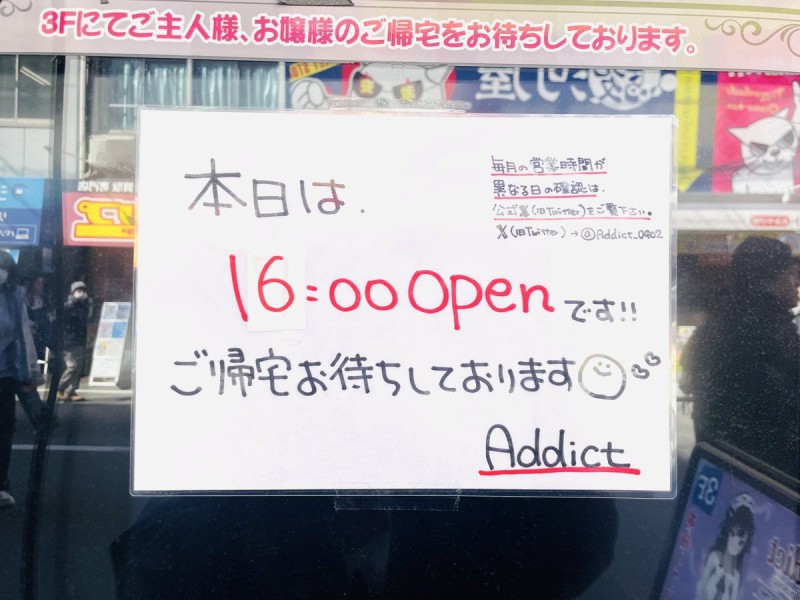 3Fにてご主人様、お嬢様のご帰宅をお待ちしております。
本日は、
毎月の営業時間が
異なる日の確認は、
公式X(旧Twitter)をご覧下さい。
X(旧Twitter)→@Addict_0902
16:00 Openです!!
ご帰宅お待ちしております
Addict
3F